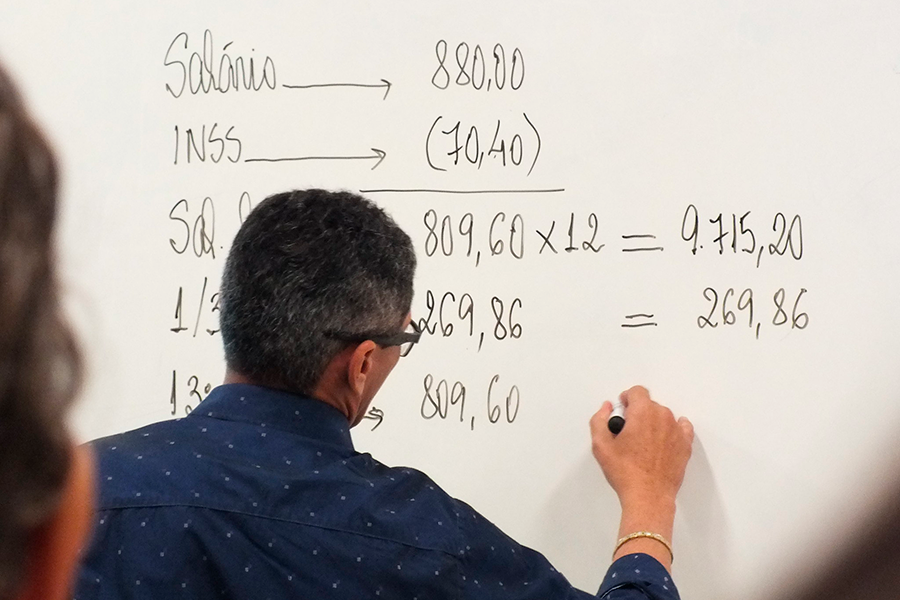 Salário → 880,00
INSS → (70,40)
Sal. 809,60 x 12 = 9.715,20
1/3 269,86 = 269,86
13º → 809,60